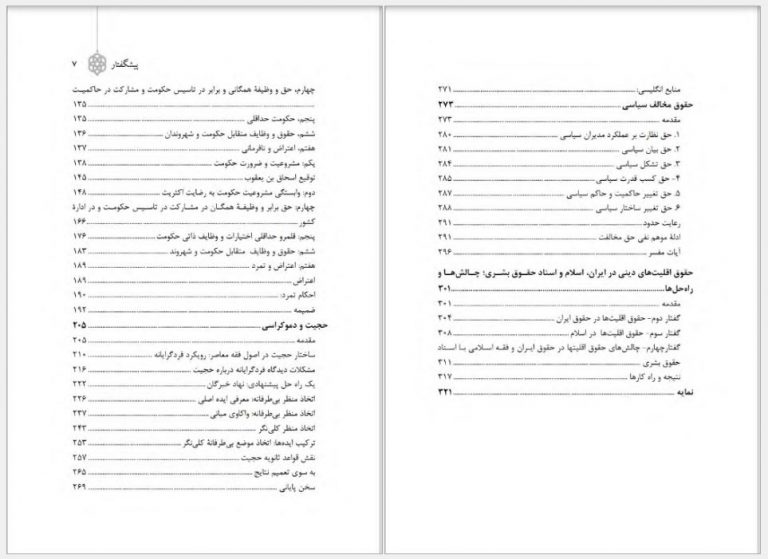 پیشگفتار ۷
چهارم، حق و وظیفهٔ همگانی و برابر در تاسیس حکومت و مشارکت در حاکمیت
۱۳۵
پنجم، حکومت حداقلی ۱۳۵
ششم، حقوق و وظایف متقابل حکومت و شهروندان ۱۳۶
هفتم، اعتراض و نافرمانی ۱۳۷
یکم: مشروعیت و ضرورت حکومت ۱۳۸
توقیع اسحاق بن یعقوب ۱۴۵
دوم: وابستگی مشروعیت حکومت به رضایت اکثریت ۱۴۸
چهارم: حق برابر و وظیفـهٔ همگـان در مشـارکت در تاسـیس حکومـت و در ادارهٔ
کشور ۱۶۶
پنجم: قلمرو حداقلی اختیارات و وظایف ذاتی حکومت ۱۷۶
ششم: حقوق و وظایف متقابل حکومت و شهروند ۱۸۳
هفتم: اعتراض و تمرد ۱۸۹
اعتراض ۱۸۹
احکام تمرد: ۱۹۰
ضمیمه ۱۹۲
حجیت و دموکراسی ۲۰۵
مقدمه ۲۰۵
ساختار حجیت در اصول فقه معاصر: رویکرد فردگرایانه ۲۱۰
مشکلات دیدگاه فردگرایانه درباره حجیت ۲۱۶
یک راه حل پیشنهادی: نهاد خبرگان ۲۲۲
اتخاذ منظر بی‌طرفانه: معرفی ایده اصلی ۲۲۶
اتخاذ منظر بی‌طرفانه: واکاوی مبانی ۲۳۷
اتخاذ منظر کلی‌نگر ۲۴۳
ترکیب ایده‌ها: اتخاذ موضع بی‌طرفانهٔ کلی‌نگر ۲۵۳
نقش قواعد ثانویه حجیت ۲۵۷
به سوی تعمیم نتایج ۲۶۵
سخن پایانی ۲۶۹
منابع انگلیسی: ۲۷۱
حقوق مخالف سیاسی ۲۷۳
مقدمه ۲۷۳
۱. حق نظارت بر عملکرد مدیران سیاسی ۲۸۰
۲. حق بیان سیاسی ۲۸۱
۳. حق تشکل سیاسی ۲۸۴
۴- حق کسب قدرت سیاسی ۲۸۵
۵. حق تغییر حاکمیت و حاکم سیاسی ۲۸۷
۶. حق تغییر ساختار سیاسی ۲۸۸
رعایت حدود ۲۹۱
ادلهٔ موهم نفی حق مخالفت ۲۹۱
آیات مفسر ۲۹۶
حقوق اقلیت‌های دینی در ایران، اسلام و اسناد حقـوق بشـری؛ چـالش‌هـا و
راه‌حل‌ها ۳۰۱
مقدمه ۳۰۱
گفتار دوم- حقوق اقلیت‌ها در حقوق ایران ۳۰۴
گفتار سوم- حقوق اقلیت‌ها در اسلام ۳۰۸
گفتارچهارم- چالش‌های حقوق اقلیتها در حقوق ایـران و فقـه اسـلامی بـا اسـناد
حقوق بشری ۳۱۱
نتیجه و راه کارها ۳۱۷
نمایه ۳۲۱